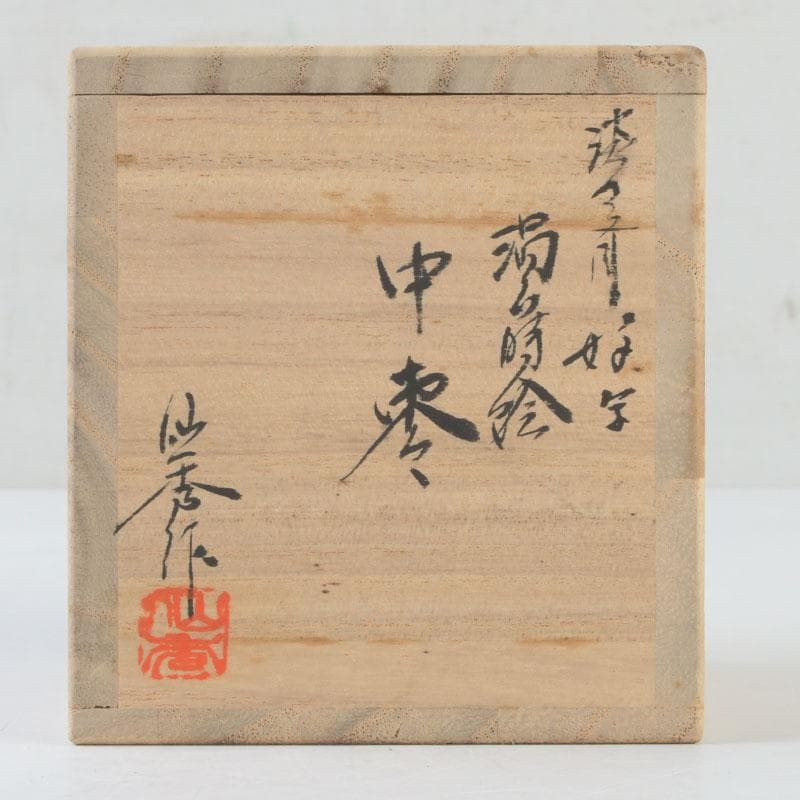 淡々斎好写
渦蒔絵
中棗
仙秀作
仙秀